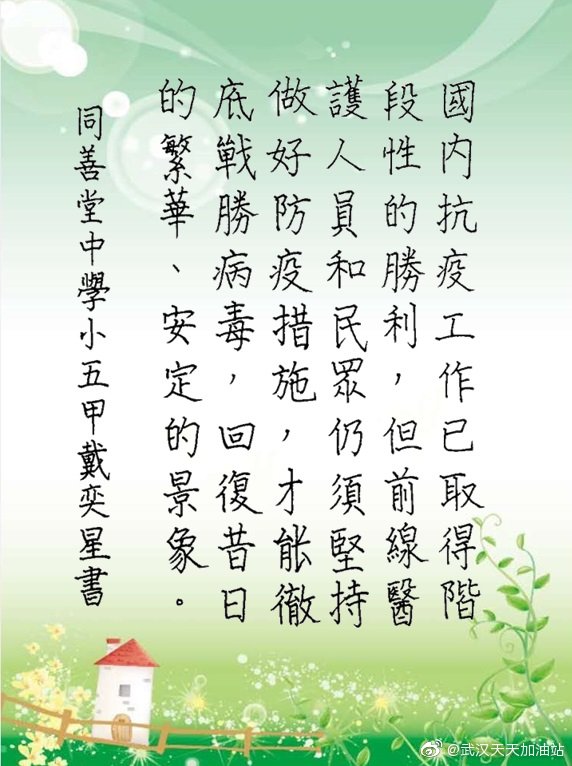 國內抗疫工作已取得階
段性的勝利，但前線醫
護人員和民眾仍須堅持
做好防疫措施，才能徹
底戰勝病毒，回復昔日
的繁華、安定的景象。
同善堂中學小五甲戴奕星書
@武汉天天加油站